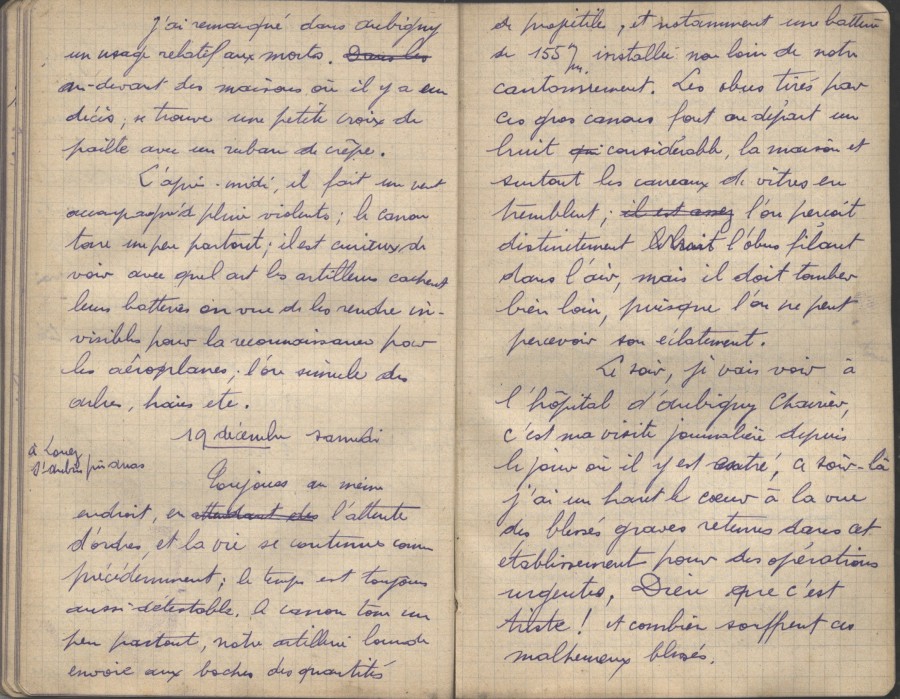 J'ai remarqué dans Aubigny
un usage relatif aux morts. Dans les
au-devant des maisons où il y a eu
décès, se trouve une petite croix de
paille avec un ruban de crêpe.
L'après-midi, il fait un vent
accompagné de pluie violents; le canon
tonne un peu partout; il est curieux de
voir avec quel art les artilleurs cachent
leurs batteries en vue de les rendre in-
visibles pour la reconnaissance pour
les aéroplanes; l'on simule des
arbres, haies etc.
19 décembre samedi
à Louez
St Aubin près Duas
Toujours au même
endroit, en attendant des l'attente
d'ordres, et la vie se continue comme
précédemment; le temps est toujours
aussi détestable. Le canon tonne un
peu partout, notre artillerie lourde
envoie aux boches des quantités
de projectiles, et notamment une batterie
de 155 installée non loin de notre
cantonnement. Les obus tirés par
ces gros canons font au départ un
bruit qui considérable, la maison et
surtout les carreaux de vitres en
tremblent; il est assez l'on perçoit
distinctement le bruit l'obus filant
dans l'air, mais il doit tomber
bien loin, puisque l'on ne peut
percevoir son éclatement.
Le soir, je vais voir à
l'hôpital d'Aubigny Charrier,
c'est ma visite journalière depuis
le jour où il y est entré, ce soir-là
j'ai un haut le cœur à la vue
des blessés graves retenus dans cet
établissement pour des opérations
urgentes, Dieu que c'est
triste! et combien souffrent ces
malheureux blessés.